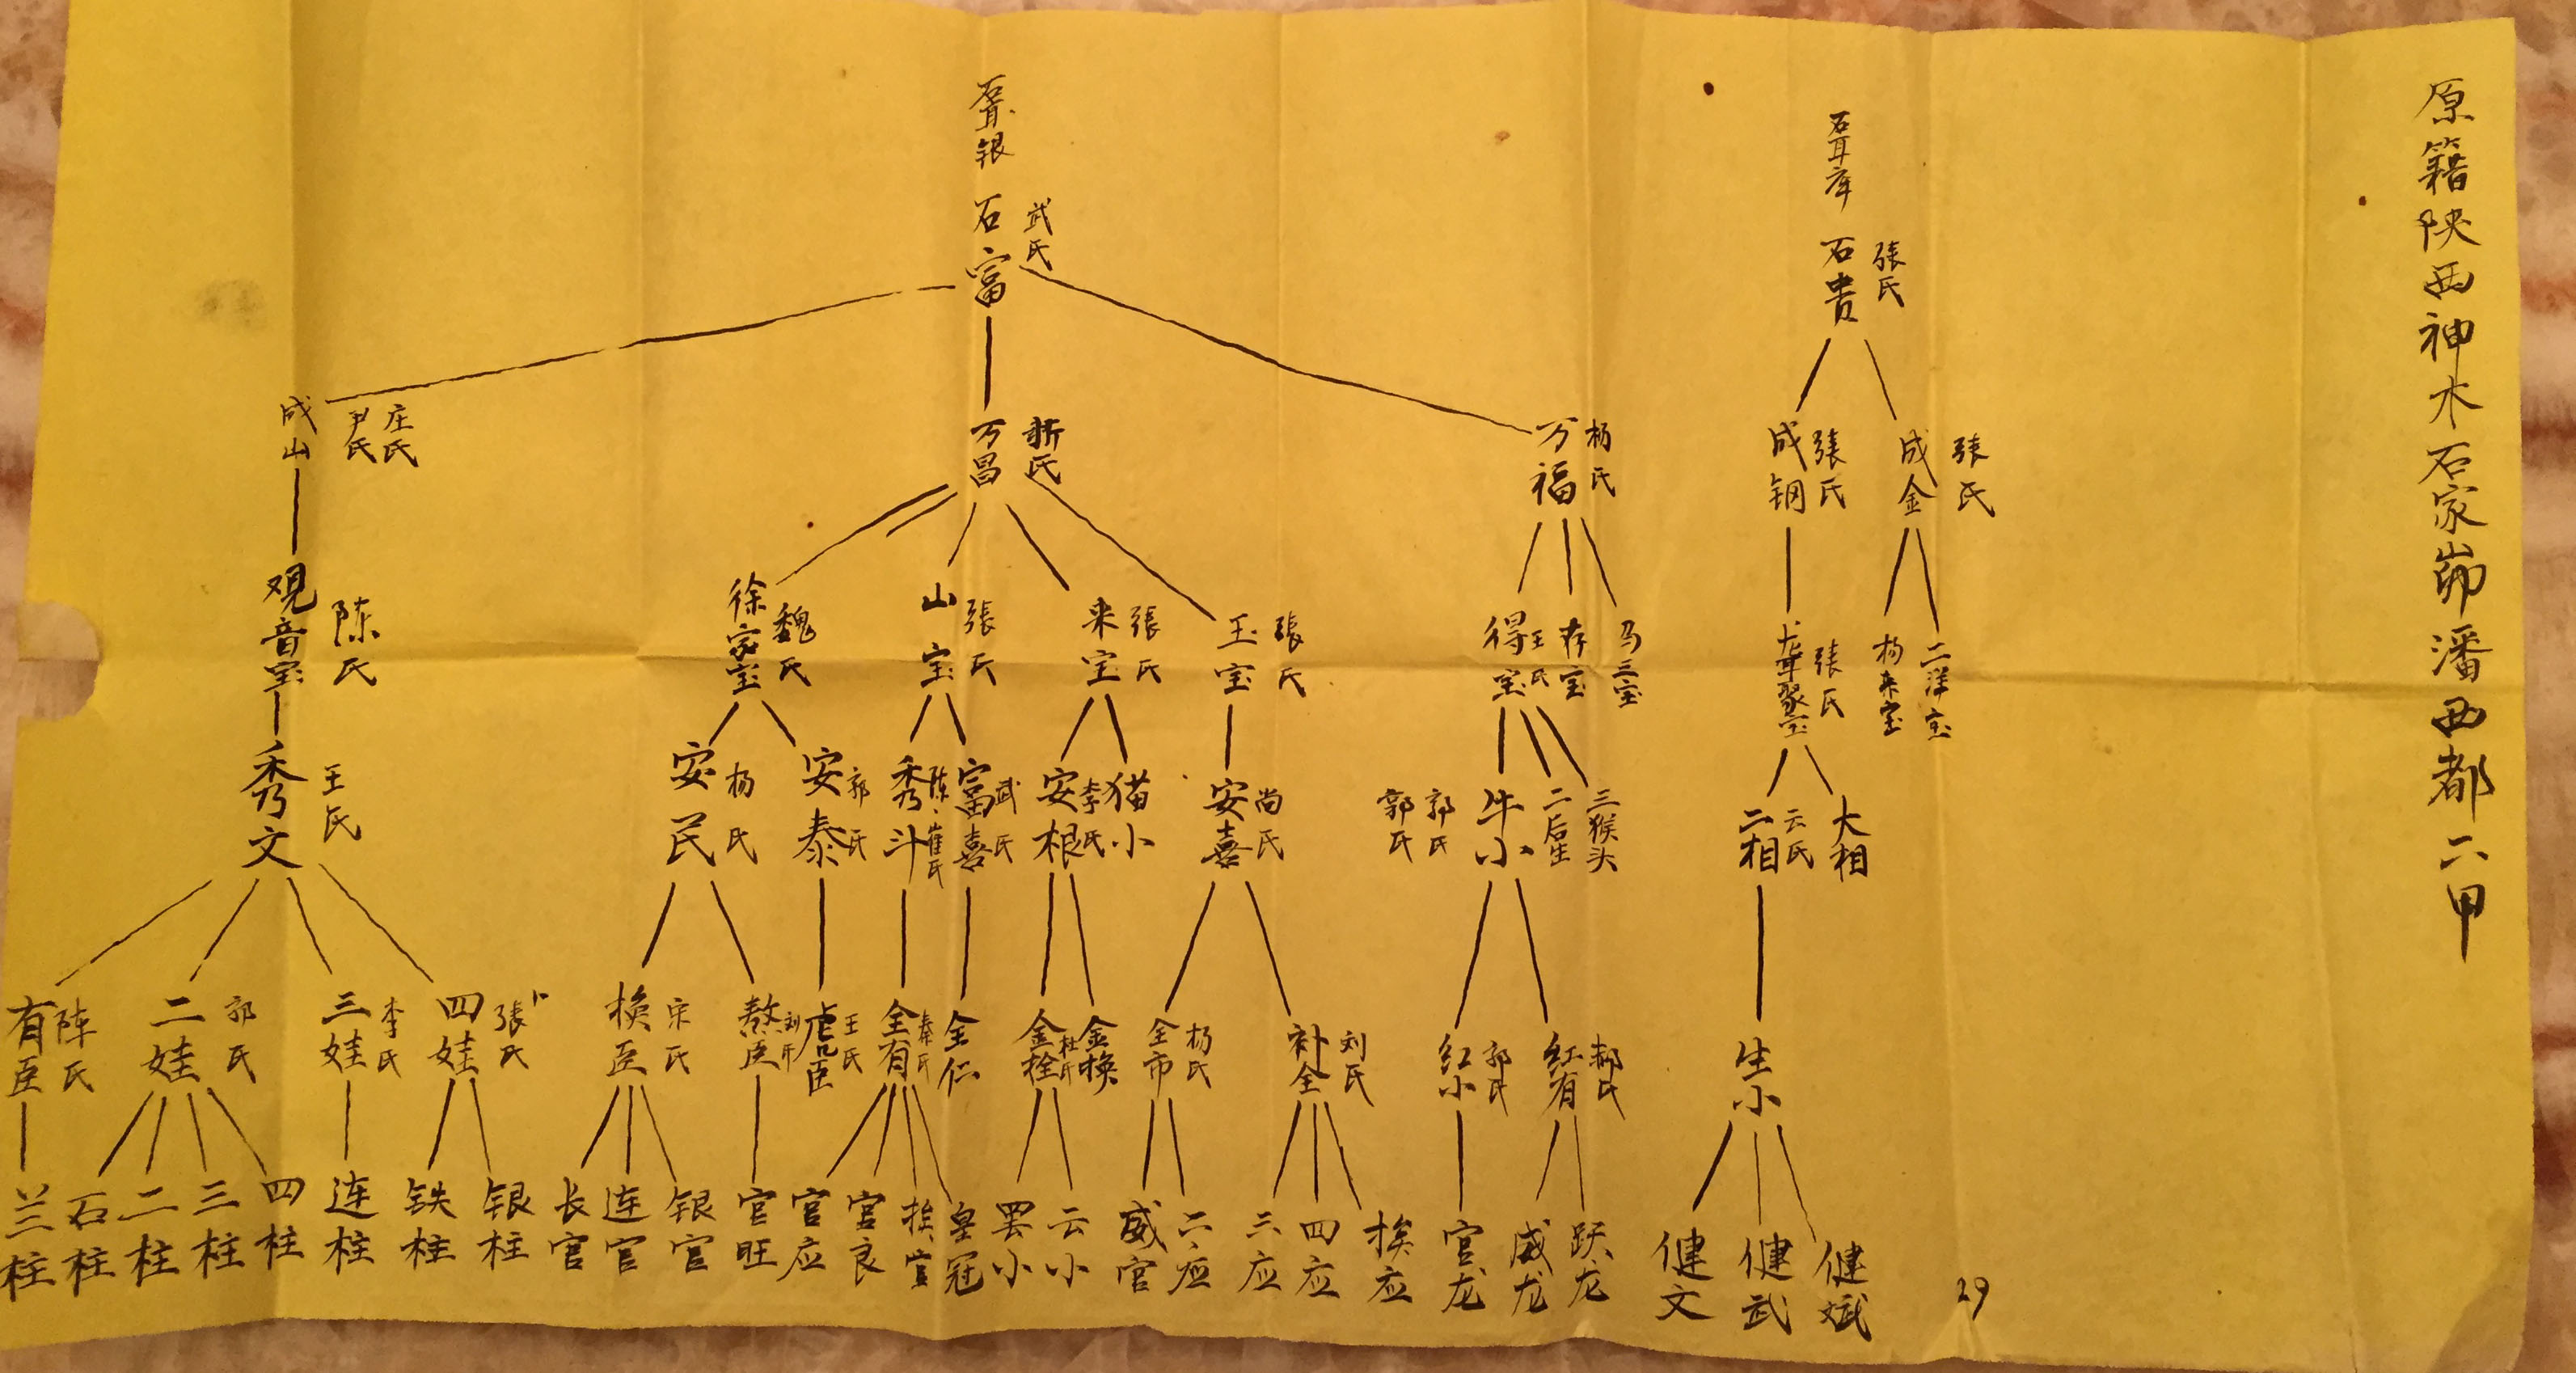 原籍陕西神木石家峁潘西都六甲
银
库
石富
武氏
石贵
張氏
成山
尹氏
庄氏
万昌
折氏
万福
杨氏
成钢
張氏
成金
張氏
观音宝
陈氏
徐家宝
魏氏
山宝
張氏
来宝
張氏
玉宝
張氏
得宝
王氏
存宝
马三宝
聚宝
張氏
杨来宝
二洋宝
秀文
王氏
安民
杨氏
安泰
郭氏
秀斗
陈、崔氏
富喜
武氏
安根
李氏
猫小
安喜
尚氏
郭氏
郭氏
牛小
二后生
三猴头
二相
云氏
大相
有臣
陈氏
二娃
郭氏
三娃
李氏
四娃
張氏
换臣
宋氏
敖臣
刘氏
虎臣
王氏
全有
秦氏
全仁
金栓
杜氏
金换
全市
杨氏
补全
刘氏
红小
郭氏
红有
郝氏
生小
兰柱
石柱
二柱
三柱
四柱
连柱
铁柱
银柱
长官
连官
银官
官旺
官应
官良
挨官
皇冠
罢小
云小
威官
二应
三应
四应
挨应
官龙
威龙
跃龙
健文
健武
健斌
29